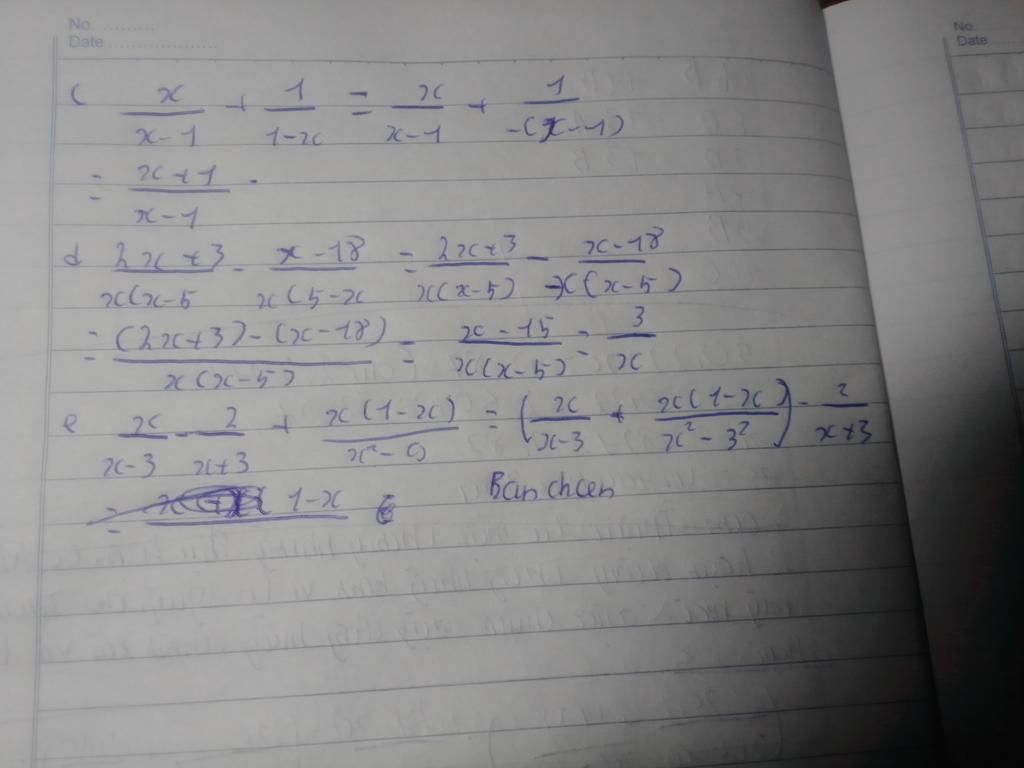 No. ..........
Date ....................
No.
Date
c x/(x-1) + 1/(1-x) = x/(x-1) + 1/(-(x-1))
= (x+1)/(x-1) .
d (2x+3)/(x(x-5) - (x-18)/(x(5-x) = (2x+3)/(x(x-5)) - (x-18)/(-x(x-5))
= ((2x+3)-(x-18))/(x(x-5)) = (x-15)/(x(x-5)) = 3/x
e x/(x-3) - 2/(x+3) + x(1-x)/(x²-9) = (x/(x-3) + x(1-x)/(x²-3²)) - 2/(x+3)
= 1-x